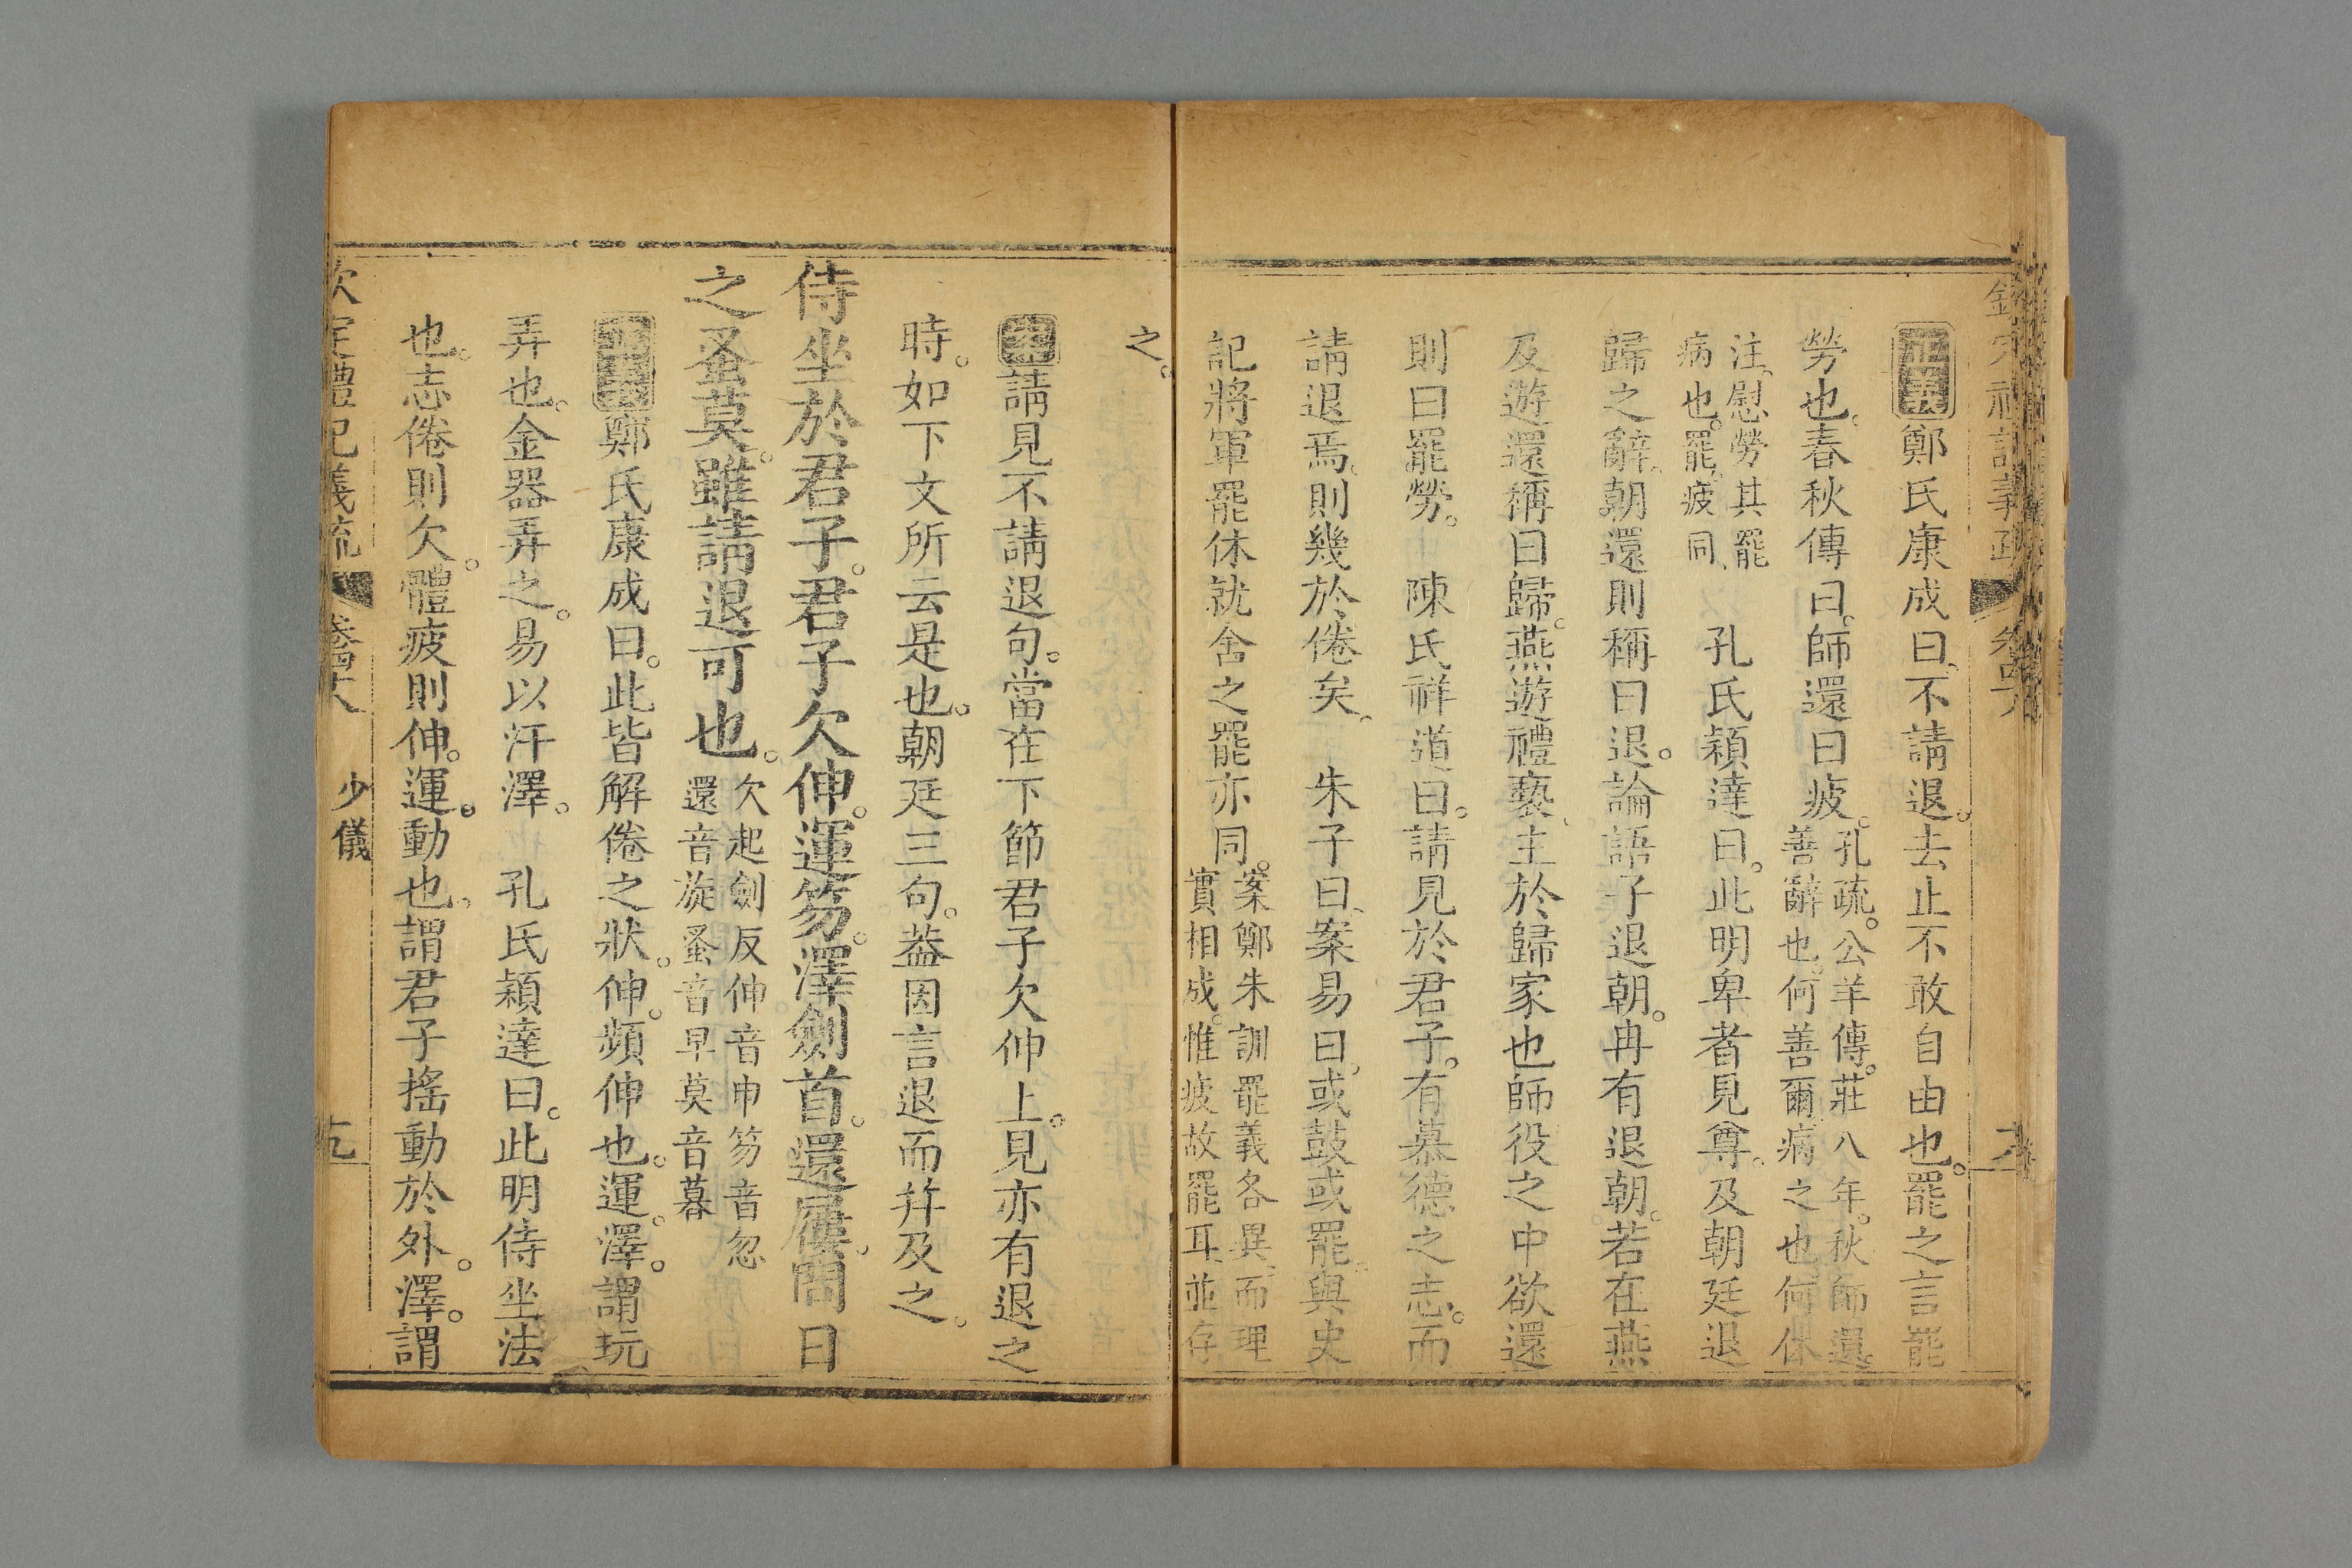 正義鄭氏康成曰、不請退。去止不敢自由也。罷之言罷
勞也。春秋傳曰。師還曰疲。孔疏。公羊傳。莊八年。秋師還。
善辭也。何善爾。病之也。何休
注、慰勞其罷
病也。罷。疲同、孔氏穎達曰。此明卑者見尊。及朝廷退
歸之辭。朝還則稱曰退。論語子退朝。冉有退朝。若在燕
及遊還稱曰歸。燕遊禮褻、主於歸家也師役之中欲還
則曰罷勞。陳氏祥道曰。請見於君子。有慕德之志。而
請退焉。則幾於倦矣。朱子曰、案易曰。或鼓或罷。與史
記將軍罷休就舍之罷亦同。案鄭朱訓罷義各異。而理
實相成。惟疲故罷耳並存
之。
案請見不請退句。當在下節君子欠伸上。見亦有退之
時。如下文所云是也。朝廷三句。葢因言退而并及之。
侍坐於君子。君子欠伸。運笏。澤劍首。還屨。問日
之蚤莫。雖請退可也。欠起劍反伸音申笏音忽
還音旋蚤音早莫音暮
正義鄭氏康成曰。此皆解倦之狀。伸。頻伸也。運。澤。謂玩
弄也。金器弄之。易以汗澤。孔氏穎達曰。此明侍坐法
也。志倦則欠。體疲則伸。運。動也。謂君子搖動於外。澤。謂
欽定禮記義疏 卷四十八 少儀